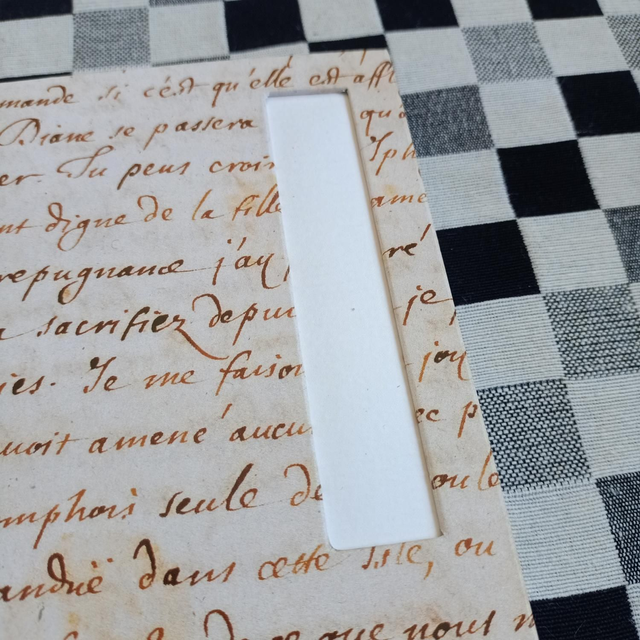 mande si c'est qu'elle est affl
Diane se passera qu
er. Tu peus croi Iph
nt digne de la fille ame
repugnance j'ay re'
sacrifiez depui je
ies. Je me faiso jou
uoit amené aucu ec p
omphois seule de ou le
andrie dans cette Isle, ou
ce que nous m